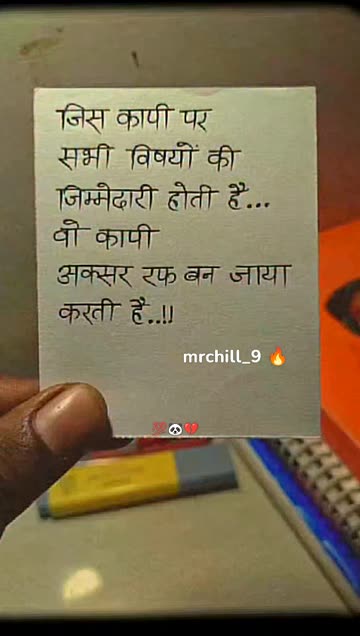 जिस कापी पर
सभी विषयों की
जिम्मेदारी होती है...
वो कापी
अक्सर रफ बन जाया
करती है..!!
mrchill_9 🔥
💯🐼💔